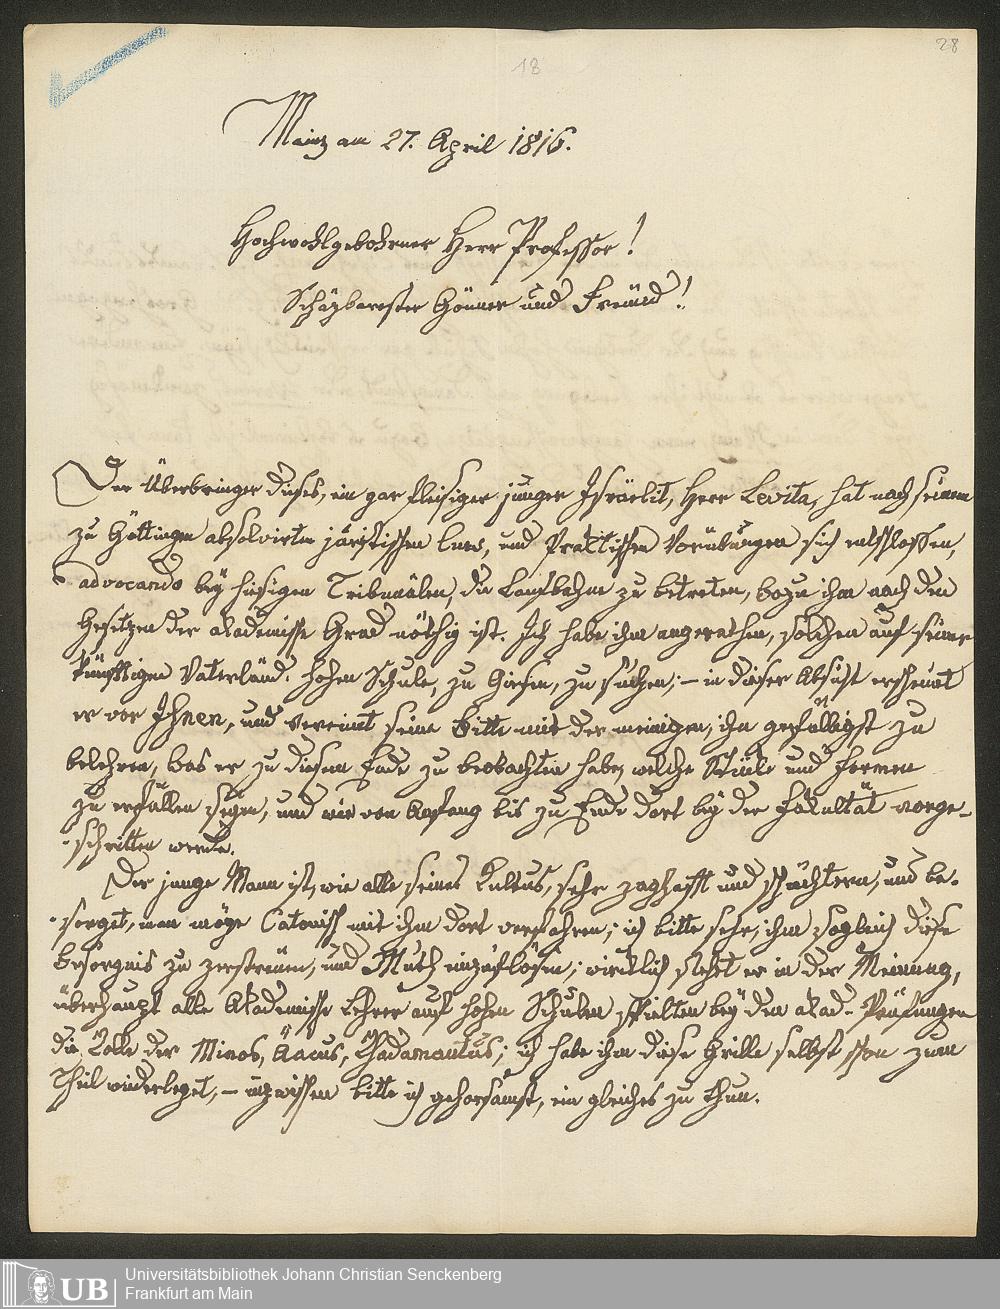 28
18
Mainz am 27. April 1816.
Hochwohlgebohrner Herr Professor!
Schäzbarester Gönner und Freünd!
Der Überbringer dieses, ein gar fleisiger junger Israëlit, Herr Levita, hat nach seinem
zu Göttingen absolvirten juristischen Curs, und Praktischen Vorübungen sich entschlossen,
advocando bey hiesigen Tribunälen, die Laufbahne zu betreten, wozu ihm nach den
Gesetzen der akademische Grad nöthig ist. Ich habe ihm angerathen, solchen auf seiner
künfftigen Vaterländ. hohen Schule, zu Giesen, zu suchen; – in dieser Absicht erscheint
er vor Ihnen, und vereinet seine Bitte mit der meinigen, ihn gefälligst zu
belehren, was er zu diesem Ende zu beobachten habe, welche Stücke und Formen
zu erfüllen seyen, und wie von Anfang bis zu Ende dort bey der Fakultät vorge-
-schritten werde.
Der junge Mann ist, wie alle seines Kultus, sehr zaghafft und schüchtern, und be-
-sorget, man möge Catonisch mit ihm dort verfahren; ich bitte sehr, ihm sogleich diese
Besorgnis zu zerstreuen, und Muth einzuflösen; wircklich stehet er in der Meinung,
überhaupt alle Akademische Lehrer auf hohen Schulen spielten bey den akad- Prüfungen
die Rolle der Minos, Äacus, Rhadamantus; ich habe ihm diese Grille selbst schon zum
Theil wiederleget, – inzwischen bitte ich gehorsamst, ein gleiches zu thun.
UB
Universitätsbibliothek Johann Christian Senckenberg
Frankfurt am Main